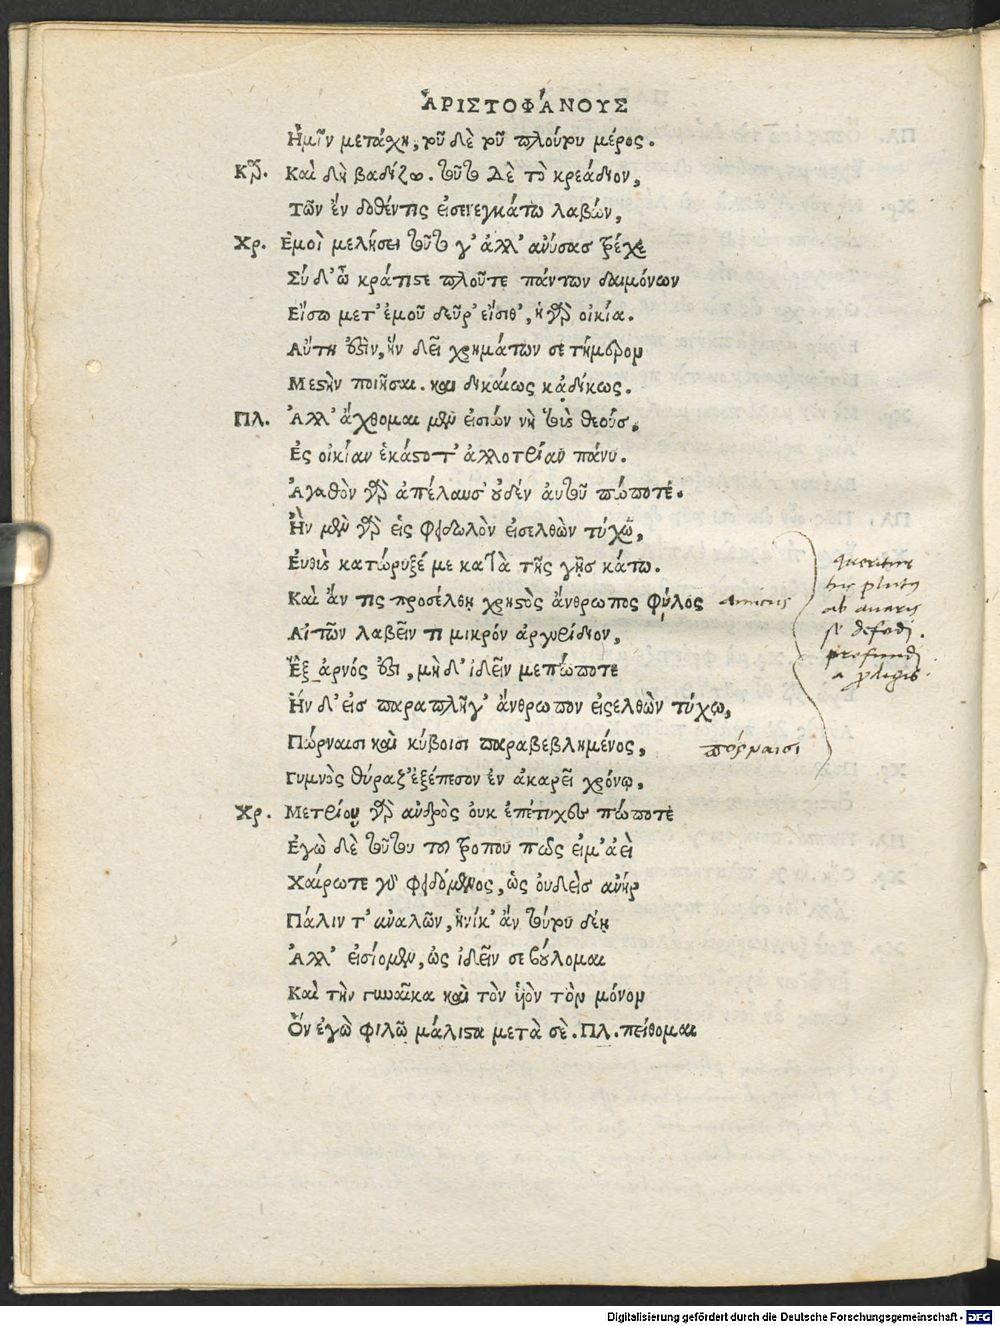 ἈΡΙΣΤΟΦΆΝΟΥΣ
Ἡμῖν μετάσχῃ, τοῦδε τοῦ πλούτου μέρος.
Κρ. Καὶ δὴ βαδίζω. τοῦτο δὲ τὸ κρεάδιον,
Τῶν ἔνδοθέν τις εἰσενεγκάτω λαβών,
Χρ. Ἐμοὶ μελήσει τοῦτό γ' ἀλλ' ἀνύσασ τρέχε
Σύ δ' ὦ κράτιστε πλοῦτε πάντων δαιμόνων
Εἴσω μετ' ἐμοῦ δεῦρ' εἴσιθ', ἡ γὰρ οἰκία.
Αὕτη ἐστὶν, ἣν δεῖ χρημάτων σε τήμερον
Μεστὴν ποιῆσαι. καὶ δικαίως κἀδίκως.
Πλ. Ἀλλ' ἄχθομαι μὲν εἰσιών νὴ τοὺς θεούς,
Ἐς οἰκίαν ἑκάστοτ' ἀλλοτρίαν πάνυ.
Ἀγαθὸν γὰρ ἀπέλαυσ' οὐδέν αὐτοῦ πώποτέ.
Ἢν μὲν γὰρ εἰς φειδωλὸν εἰσελθὼν τύχω,
Εὐθὺς κατώρυξέ με κατὰ τῆς γῆς κάτω.
Καὶ ἄν τις προσέλθῃ χρηστὸς ἄνθρωπος φίλος amicus
Αἰτῶν λαβεῖν τι μικρόν ἀργυρίδιον,
Ἔξαρνός ἐστι, μὴ δ' ἰδεῖν με πώποτε
Ἢν δ' εἰσ παραπλῆγ' ἄνθρωπον εἰσελθὼν τύχω,
Πώρναισι καὶ κύβοισι παραβεβλημένος, πόρναισι
Γυμνὸς θύραζ' ἐξέπεσον ἐν ἀκαρεῖ χρόνῳ,
Χρ. Μετρίου γὰρ ἀνδρὸς οὐκ ἐπέτυχες πώποτε
Ἐγὼ δὲ τούτου τοῦ τρόπου πῶς εἰμ' ἀεὶ
Χαίρω τε γὰρ φειδόμενος, ὡς οὐδεὶς ἀνὴρ
Πάλιν τ' ἀναλῶν, ἡνίκ' ἂν τούτου δέῃ
Ἀλλ' εἰσίομεν, ὡς ἰδεῖν σε βούλομαι
Καὶ τὴν γυναῖκα καὶ τὸν ὑὸν τὸν μόνον
Ὃν ἐγὼ φιλῶ μάλιστα μετὰ σὲ. Πλ. πείθομαι
Queritur
hic plutus
ab avaris
se defodi.
profundi
a prodigis.
Digitalisierung gefördert durch die Deutsche Forschungsgemeinschaft - DFG